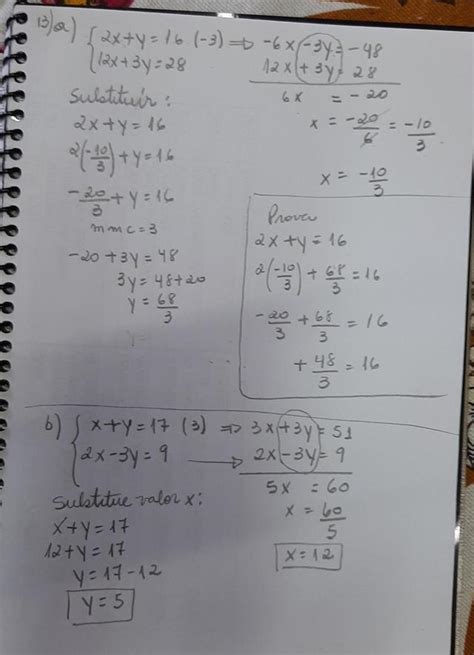 13) a) { 2x + y = 16 (-3) ⇒ -6x - 3y = -48
12x + 3y = 28 12x + 3y = 28
6x = -20
x = -20/6 = -10/3
x = -10/3
Substituir:
2x + y = 16
2(-10/3) + y = 16
-20/3 + y = 16
mmc = 3
-20 + 3y = 48
3y = 48 + 20
y = 68/3
Prova
2x + y = 16
2(-10/3) + 68/3 = 16
-20/3 + 68/3 = 16
+ 48/3 = 16
b) { x + y = 17 (3) ⇒ 3x + 3y = 51
2x - 3y = 9 → 2x - 3y = 9
5x = 60
x = 60/5
x = 12
Substitue valor x:
x + y = 17
12 + y = 17
y = 17 - 12
y = 5